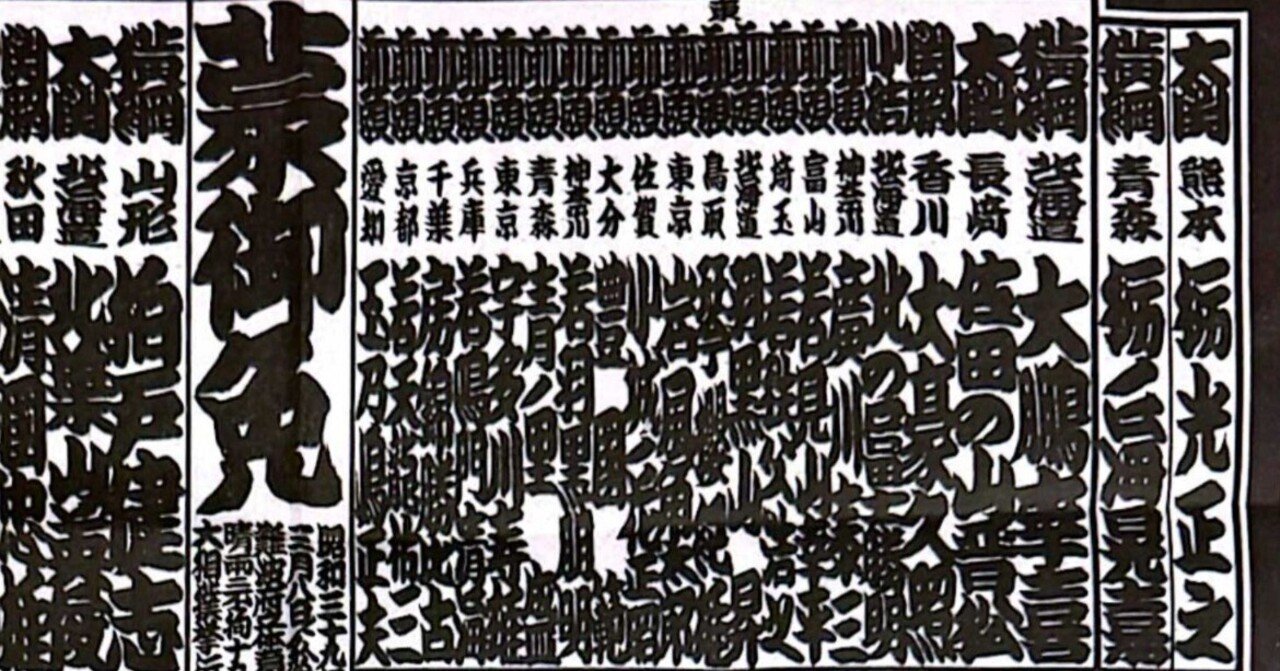 東
大関 熊本 栃光正之
横綱 青森 栃ノ海晃嘉
横綱 北海道 大鵬幸喜
大関 長崎 佐田の山晋松
関脇 香川 大豪久照
小結 北海道 北の冨士勝明
前頭 神奈川 廣川泰三
前頭 富山 若見山幸平
前頭 埼玉 若秩父
前頭 北海道 羽黒山昇
前頭 鳥取 琴櫻
前頭 東京 岩風角太郎
前頭 佐賀 小城ノ花正昭
前頭 大分 豊國範
前頭 神奈川 若羽黒朋明
前頭 青森 青ノ里盛
前頭 東京 宇多川寿雄
前頭 兵庫 若鳴門清海
前頭 千葉 房錦勝比古
前頭 京都 若天龍祐三
前頭 愛知 玉乃島正夫
蒙御免
昭和三十九
三月八日
横綱 山形 柏戸健志
大関 北海道 北葉山英俊
関脇 秋田 清國忠雄